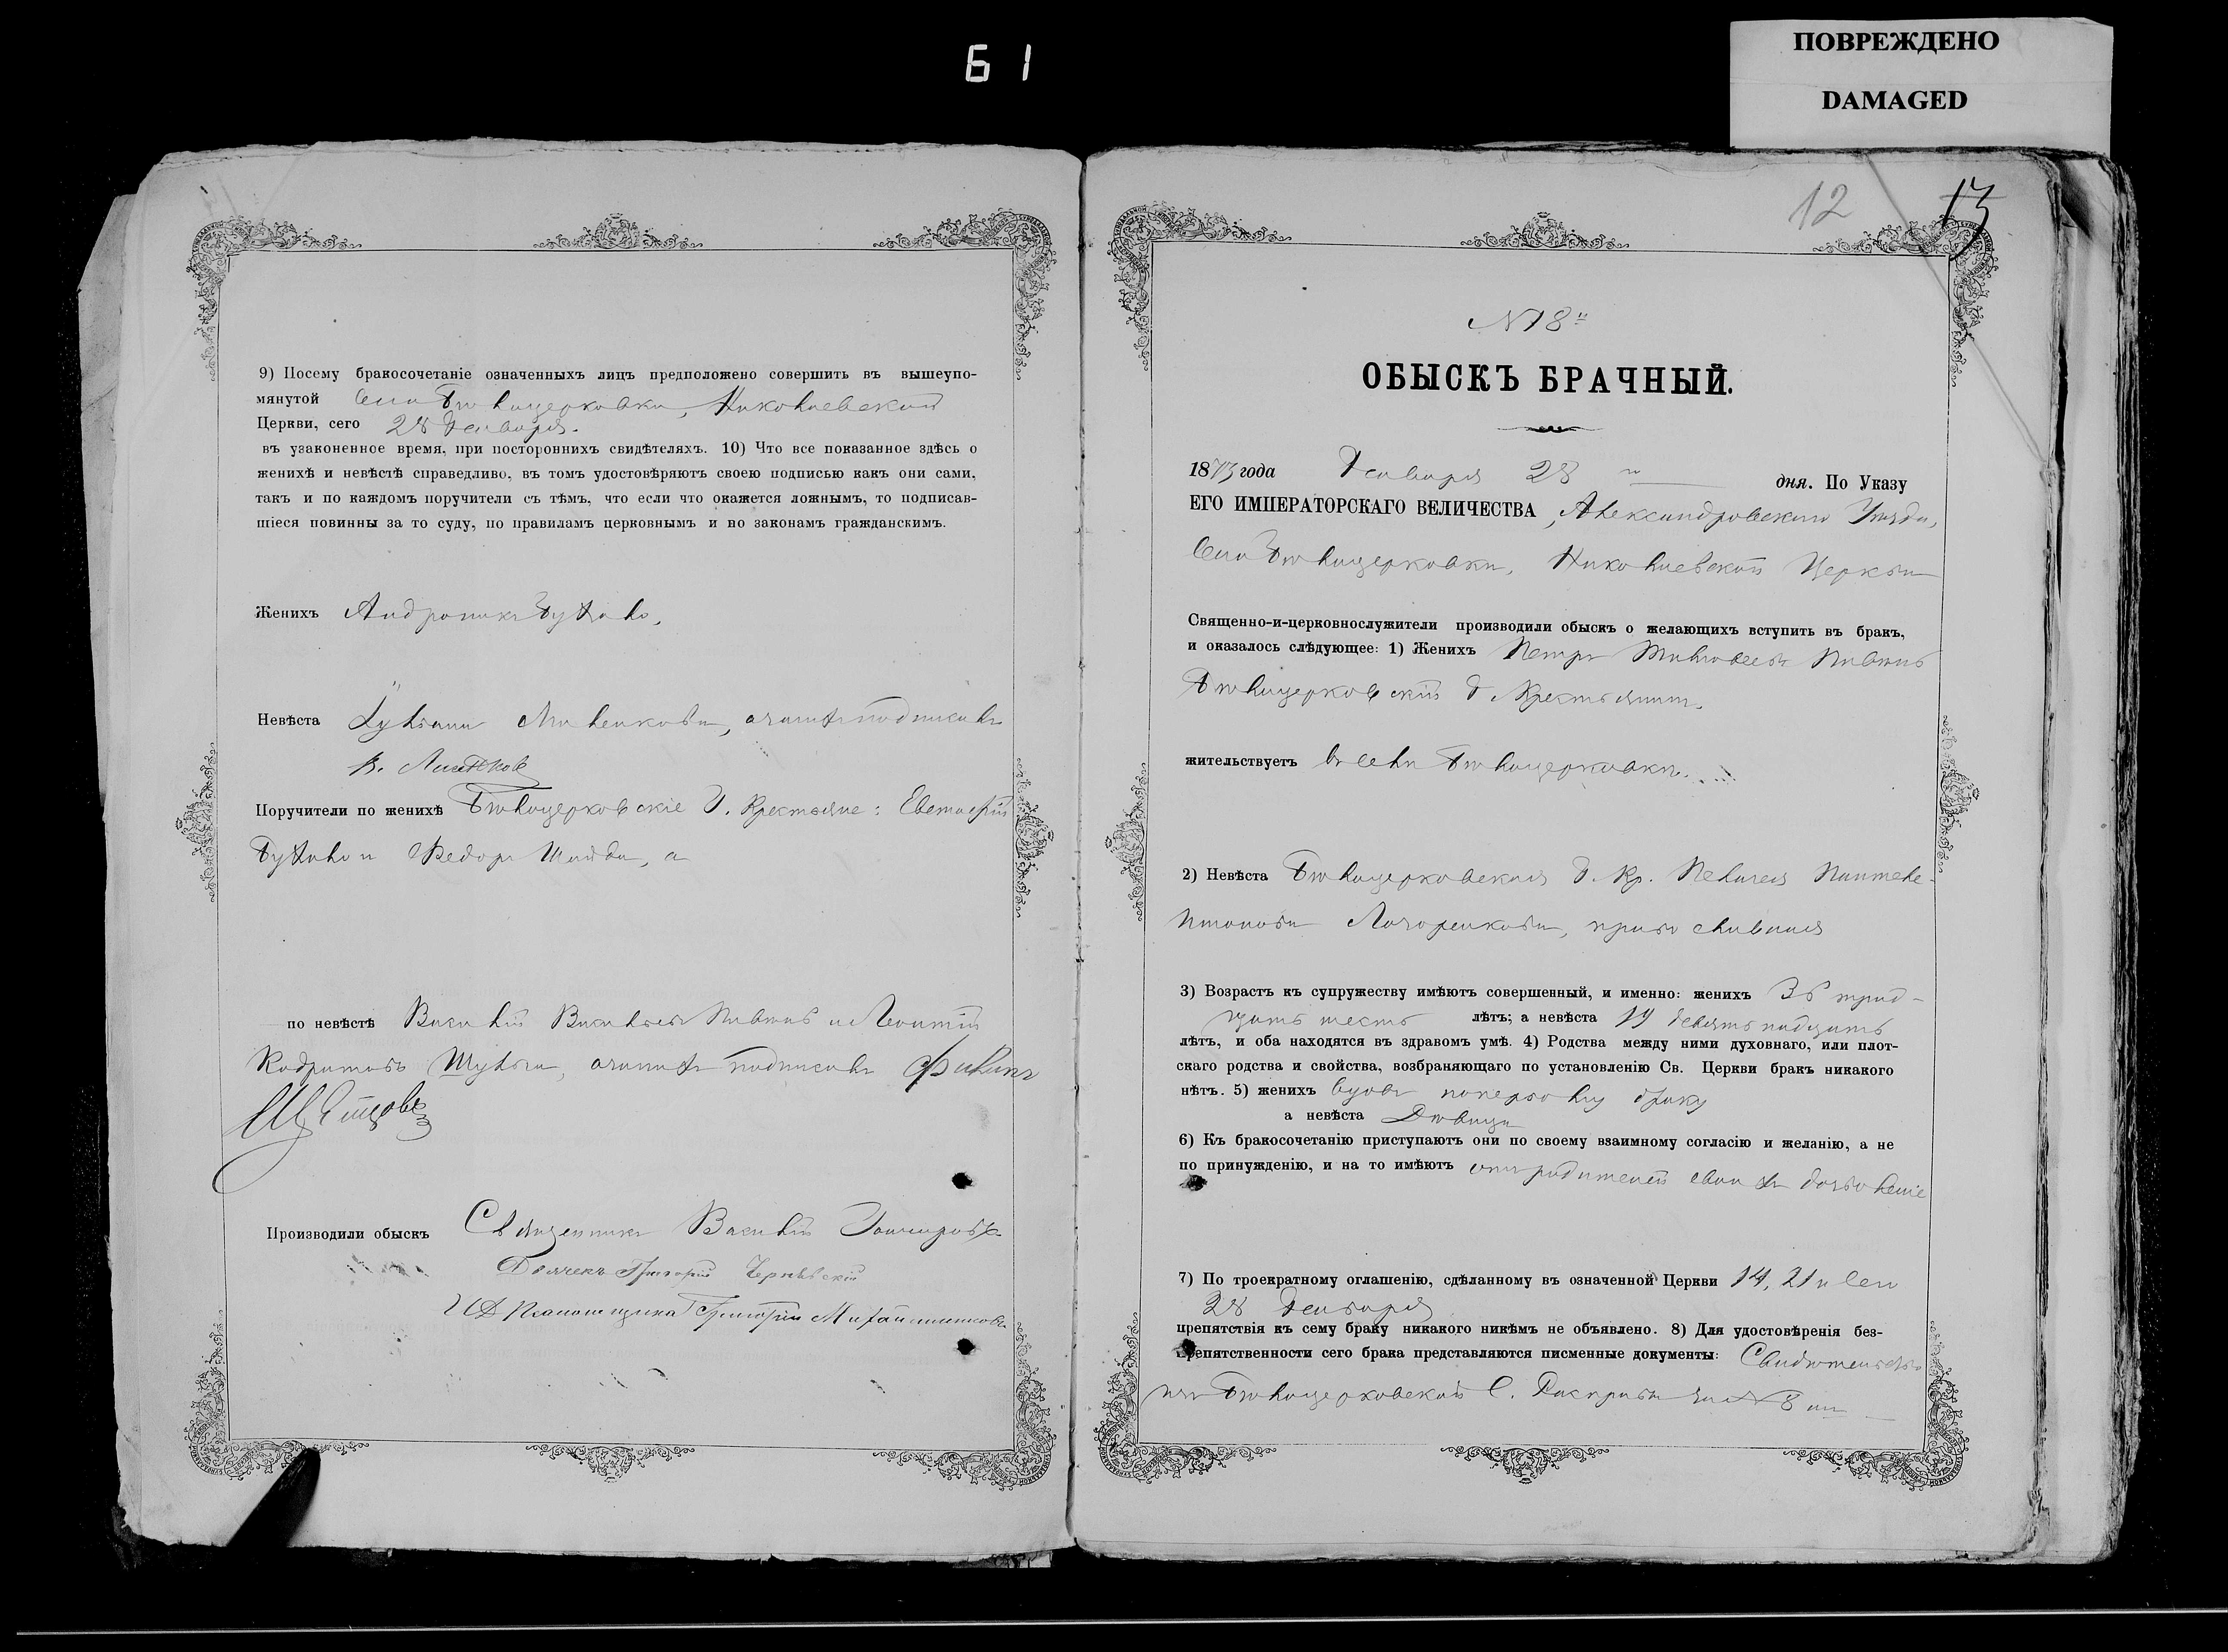 Б 1
ПОВРЕЖДЕНО
DAMAGED
9) Посему бракосочетаніе означенныхъ лицъ предположено совершить въ вышеупо-
мянутой Села Бѣлоцерковки, Николаевской
Церкви, сего 28 Января.
въ узаконенное время, при постороннихъ свидѣтеляхъ. 10) Что все показанное здѣсь о
женихѣ и невѣстѣ справедливо, въ томъ удостовѣряютъ своею подписью какъ они сами,
такъ и по каждомъ поручители съ тѣмъ, что если что окажется ложнымъ, то подписав-
шіеся повинны за то суду, по правиламъ церковнымъ и по законамъ гражданскимъ.
Женихъ Андроникъ
Невѣста подписалъ
В.
Поручители по женихѣ Бѣлоцерковскіе Г. Крестьяне: Евстафій
и Федоръ Шайда, а
по невѣстѣ Василій Васильевъ и Леонтій
Шульга, подписалъ
Производили обыскъ Священникъ Василій
Дьячекъ Григорій
ИД Пономарика Григорій
12 13
№ 8й
ОБЫСКЪ БРАЧНЫЙ.
1873 года Января 28 дня. По Указу
ЕГО ИМПЕРАТОРСКАГО ВЕЛИЧЕСТВА, Александровскаго Уѣзда,
Села Бѣлоцерковки, Николаевской Церкви
Священно-и-церковнослужители производили обыскъ о желающихъ вступить въ бракъ,
и оказалось слѣдующее: 1) Женихъ Петръ
Бѣлоцерковскій Г Крестьянинъ,
жительствуетъ въ селѣ Бѣлоцерковкѣ.
2) Невѣста Бѣлоцерковская Г. Кр. Пелагея Пантеле-
ймонова православная
3) Возрастъ къ супружеству имѣютъ совершенный, и именно: женихъ 36 трид-
цать шесть лѣтъ; а невѣста 19 девятьнадцать
лѣтъ, и оба находятся въ здравомъ умѣ. 4) Родства между ними духовнаго, или плот-
скаго родства и свойства, возбраняющаго по установленію Св. Церкви бракъ никакого
нѣтъ. 5) женихъ вдовъ попервому браку
а невѣста Дѣвица
6) Къ бракосочетанію приступаютъ они по своему взаимному согласію и желанію, а не
по принужденію, и на то имѣютъ отъ родителей своихъ дозволеніе
7) По троекратному оглашенію, сдѣланному въ означенной Церкви 14, 21 и сего
28 Января
препятствія къ сему браку никакого никѣмъ не объявлено. 8) Для удостовѣренія без-
препятственности сего брака представляются писменные документы: Свидѣтельство
изъ Бѣлоцерковской С. Расправы за № 8